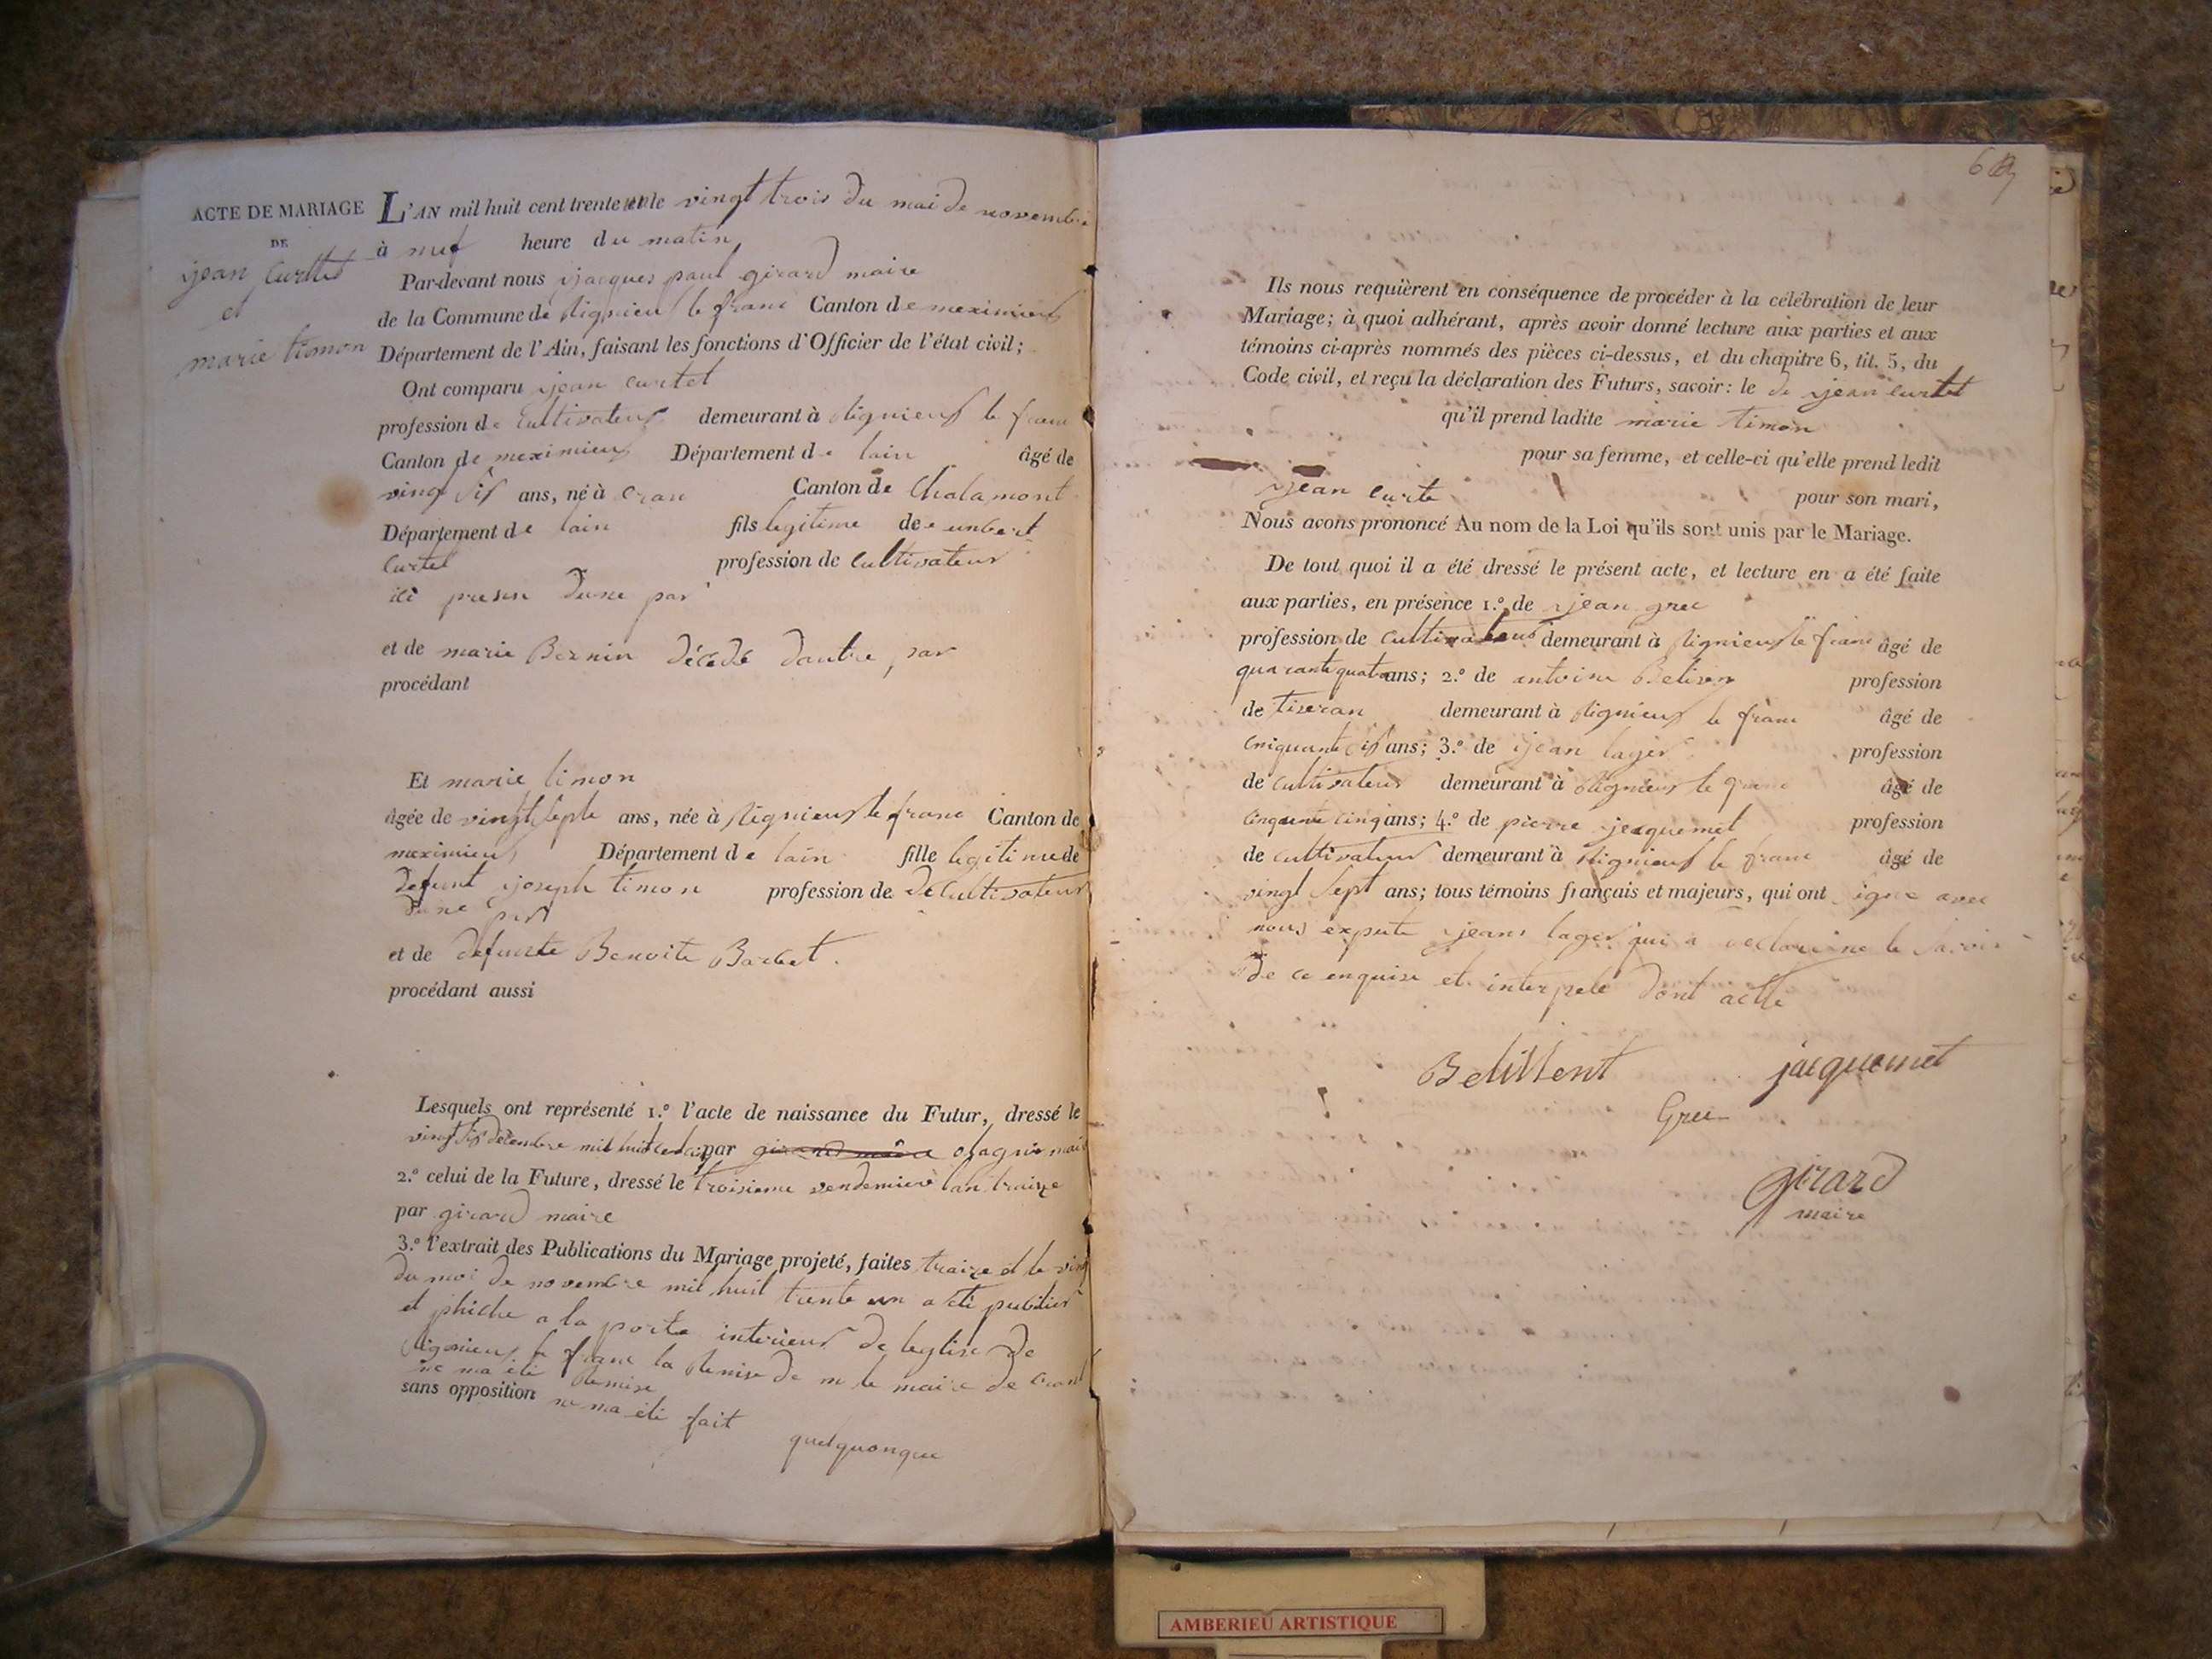 ACTE DE MARIAGE
DE
jean Curttet
et
marie timon
L'AN mil huit cent trente un le vingt trois du moi de novembre
à neuf heure du matin
Par-devant nous jacques paul girard maire
de la Commune de Rignieux le franc Canton de meximieux
Département de l'Ain, faisant les fonctions d'Officier de l'état civil;
Ont comparu jean curtet
profession de Cultivateur demeurant à Rignieux le franc
Canton de meximieux Département de lain âgé de
vingt sis ans, né à cran Canton de Chalamont
Département de lain fils legitime de unbert
Curtet profession de Cultivateur
ici presen dune par
et de marie Bernin décédé dautre par
procédant
Et marie timon
âgée de vingt septe ans, née à Rignieux le franc Canton de
meximieux Département de lain fille legitime de
defunt joseph timon profession de de Cultivateur
dune par
et de defunte Benoite Barbet.
procédant aussi
Lesquels ont représenté 1.º l'acte de naissance du Futur, dressé le
vingt sis décembre mil huit cent cinq par girard maire olagnié maire
2.º celui de la Future, dressé le troisieme vendemiere lan traize
par girard maire
3.º l'extrait des Publications du Mariage projeté, faites traize et le vingt
du moi de novembre mil huit trente un a été publier
et phiche a la porte interieur de leglise de
Rignieux le franc la Remise de m le maire de Crant
ne ma été Remise
sans opposition ne ma été fait
quelquonque
Ils nous requièrent en conséquence de procéder à la célébration de leur
Mariage; à quoi adhérant, après avoir donné lecture aux parties et aux
témoins ci-après nommés des pièces ci-dessus, et du chapitre 6, tit. 5, du
Code civil, et reçu la déclaration des Futurs, savoir: le de jean curtet
qu'il prend ladite marie timon
pour sa femme, et celle-ci qu'elle prend ledit
jean curte pour son mari,
Nous avons prononcé Au nom de la Loi qu'ils sont unis par le Mariage.
De tout quoi il a été dressé le présent acte, et lecture en a été faite
aux parties, en présence 1.º de jean gree
profession de cultivateur demeurant à Rignieux le franc âgé de
quarante quatre ans; 2.º de antoine profession
de tiseran demeurant à Rignieux le franc âgé de
cinquante sis ans; 3.º de jean lager profession
de cultivateur demeurant à Rignieux le franc âgé de
cinquante cinq ans; 4.º de pierre jacquemet profession
de cultivateur demeurant à Rignieux le franc âgé de
vingt sept ans; tous témoins français et majeurs, qui ont signe avec
nous expute jean lager qui a declari ne le savoir
de ce enquise et interpelé dont actte
jacquemet
Gree
girard
maire
AMBERIEU ARTISTIQUE